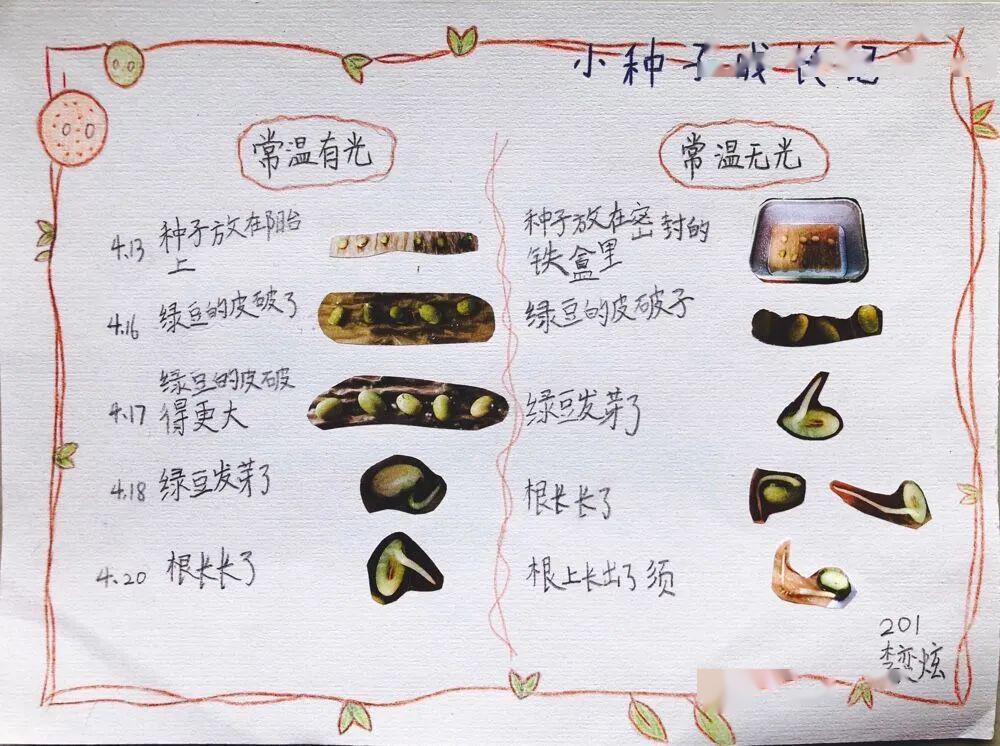 小种子成长记
常温有光
常温无光
4.13 种子放在阳台
上
种子放在密封的
铁盒里
4.16 绿豆的皮破了
绿豆的皮破子
4.17 绿豆的皮破
得更大
绿豆发芽了
4.18 绿豆发芽了
根长长了
4.20 根长长了
根上长出了须
201
李栾炫